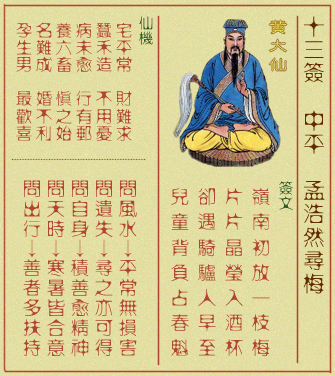 十三簽 中平 孟浩然尋梅
黄大仙
簽文
嶺南初放一枝梅
片片晶瑩入酒杯
卻遇騎驢人早至
兒童背負占春魁
仙機
宅平常 財難求
蠶禾造 不用憂
病未愈 行有郵
養六畜 慎之始
名難成 婚不利
孕生男 最歡喜
問風水→平常無損害
問遺失→尋之亦可得
問自身→積善愈精神
問天時→寒暑皆合意
問出行→善者多扶持